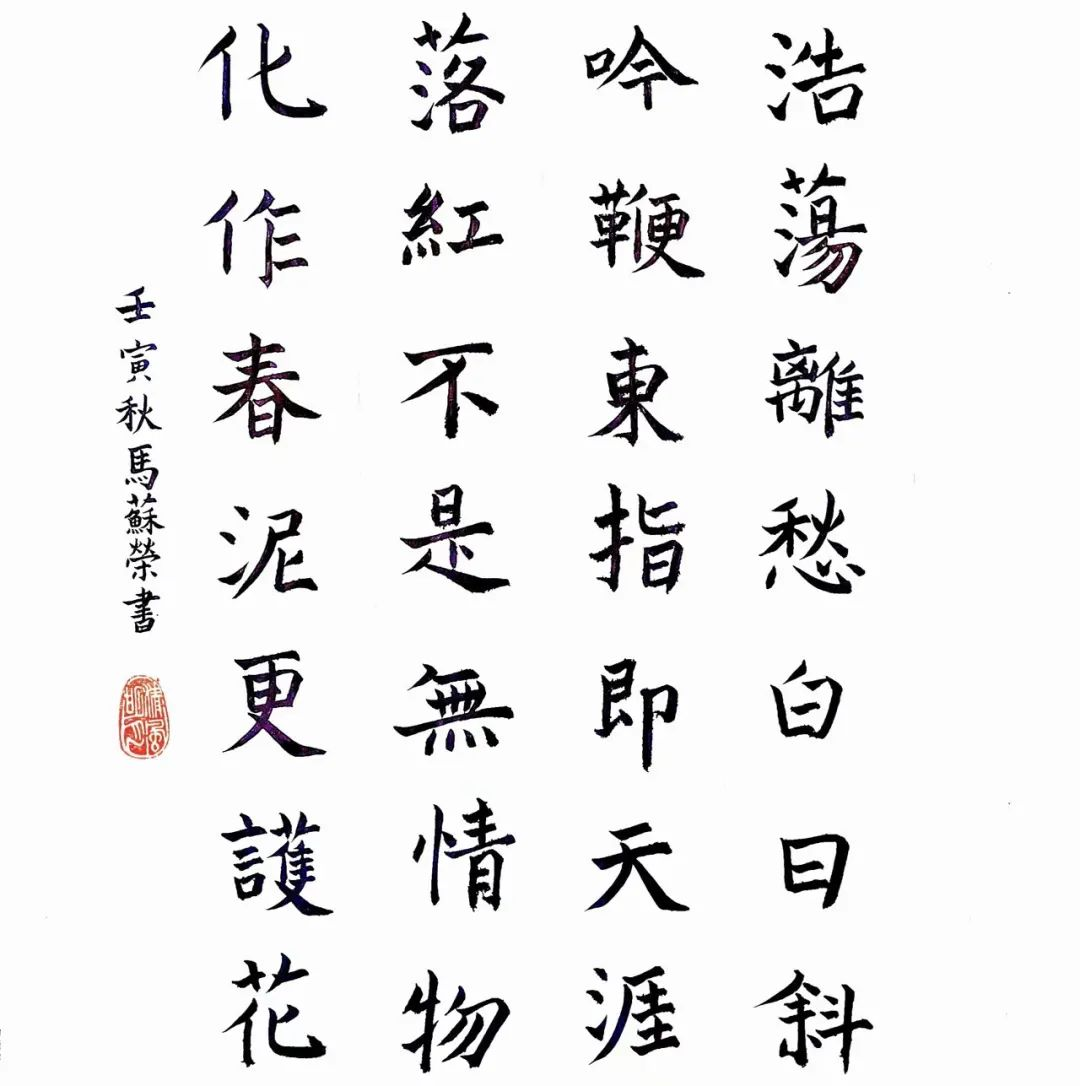 浩蕩離愁白日斜
吟鞭東指即天涯
落紅不是無情物
化作春泥更護花
壬寅秋馬蘇榮書